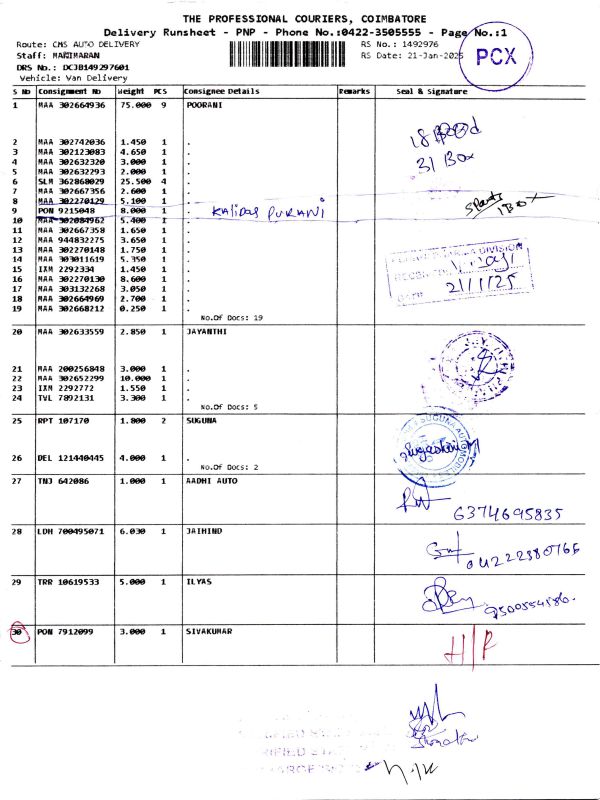 THE PROFESSIONAL COURIERS, COIMBATORE
Delivery Runsheet - PNP - Phone No.:0422-3505555 - Page No.:1
Route: CMS AUTO DELIVERY RS No.: 1492976
Staff: MARIMARAN RS Date: 21-Jan-2025
DRS No.: DCJB149297601
Vehicle: Van Delivery
PCX
S No Consignment No Weight PCS Consignee Details Remarks Seal & Signature
1 MAA 302664936 75.000 9 POORANI
2 MAA 302742036 1.450 1 .
3 MAA 302123083 4.650 1 .
4 MAA 302632320 3.000 1 .
5 MAA 302632293 2.000 1 .
6 SLM 362868029 25.500 4 .
7 MAA 302667356 2.600 1 .
8 MAA 302270129 5.100 1 .
9 PON 9215048 8.000 1 . KALIDAS PURANI
10 MAA 302084962 5.400 1 .
11 MAA 302667358 1.650 1 .
12 MAA 944832275 3.650 1 .
13 MAA 302270148 1.750 1 .
14 MAA 303011619 5.350 1 .
15 IXM 2292334 1.450 1 .
16 MAA 302270130 8.600 1 .
17 MAA 303132268 3.050 1 .
18 MAA 302664969 2.700 1 .
19 MAA 302668212 0.250 1 .
No.Of Docs: 19
31 Box
1 Box
DIVISION
DATE 21/1/25
20 MAA 302633559 2.850 1 JAYANTHI
21 MAA 200256848 3.000 1 .
22 MAA 302652299 10.000 1 .
23 IXM 2292772 1.550 1 .
24 TVL 7892131 3.300 1 .
No.Of Docs: 5
25 RPT 107170 1.800 2 SUGUNA
26 DEL 121440445 4.000 1 .
No.Of Docs: 2
SUGUNA AUTOMOBILES
27 TNJ 642086 1.000 1 AADHI AUTO
6374695835
28 LDH 700495071 6.030 1 JAIHIND
04222280766
29 TRR 10619533 5.000 1 ILYAS
9500554586.
30 PON 7912099 3.000 1 SIVAKUMAR
H/P